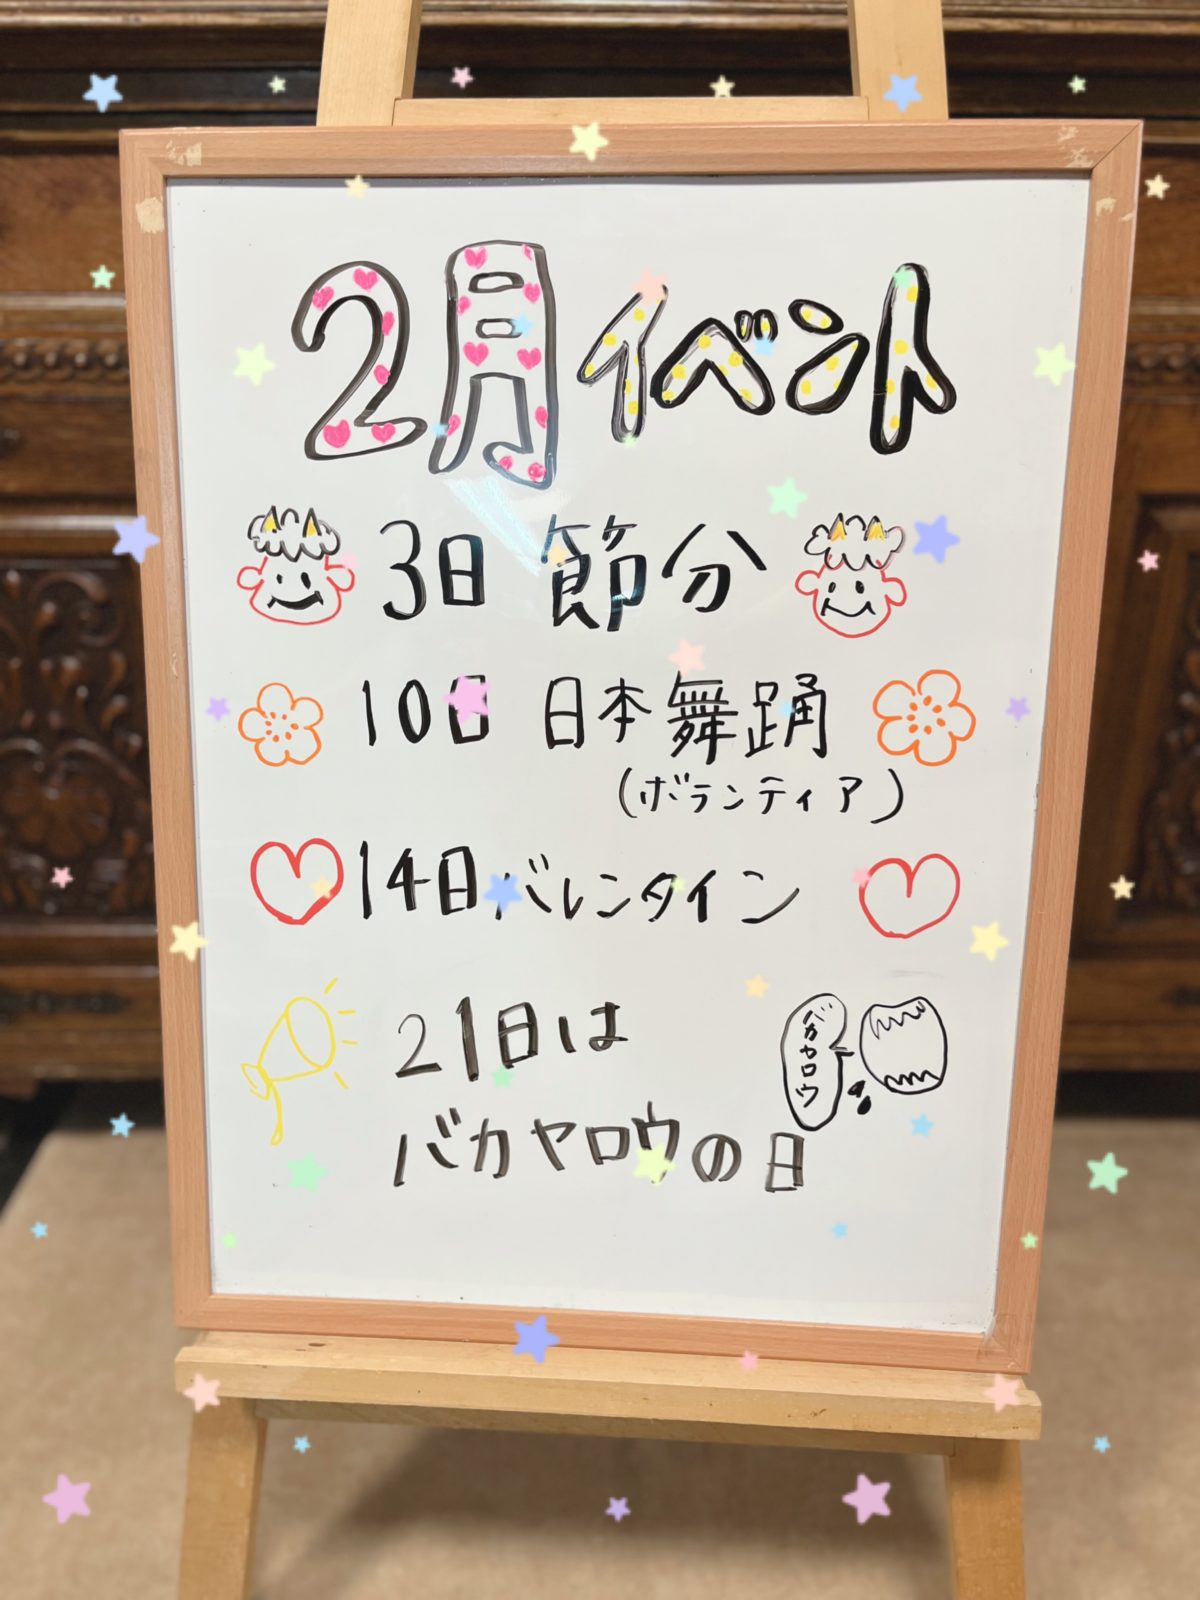 2月イベント
3日 節分
10日 日本舞踊
(ボランティア)
14日バレンタイン
21日は
バカヤロウの日
バカヤロウ